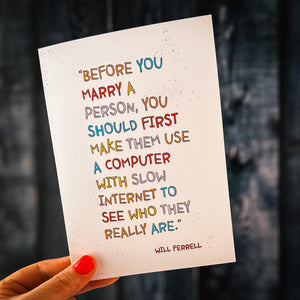 "BEFORE YOU
MARRY A
PERSON, YOU
SHOULD FIRST
MAKE THEM USE
A COMPUTER
WITH SLOW
INTERNET TO
SEE WHO THEY
REALLY ARE."
WILL FERRELL